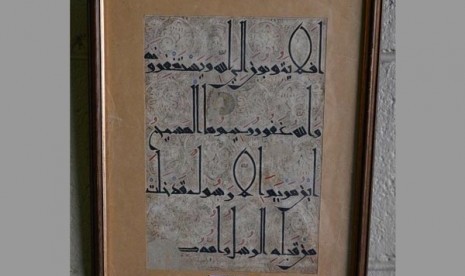 افلا يتوبون الى الله ويستغفرونه
والله غفور رحيم ما المسيح
ابن مريم الا رسول قد خلت
من قبله الرسل وامه